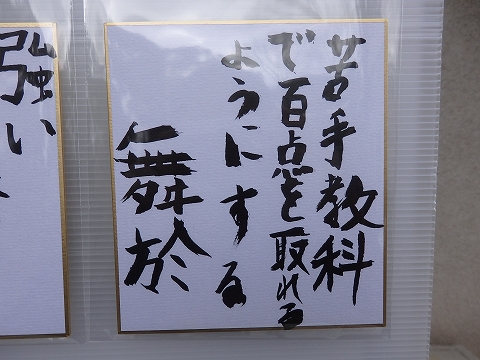 苦手教科
で百点を取れる
ようにする
舞於
強い